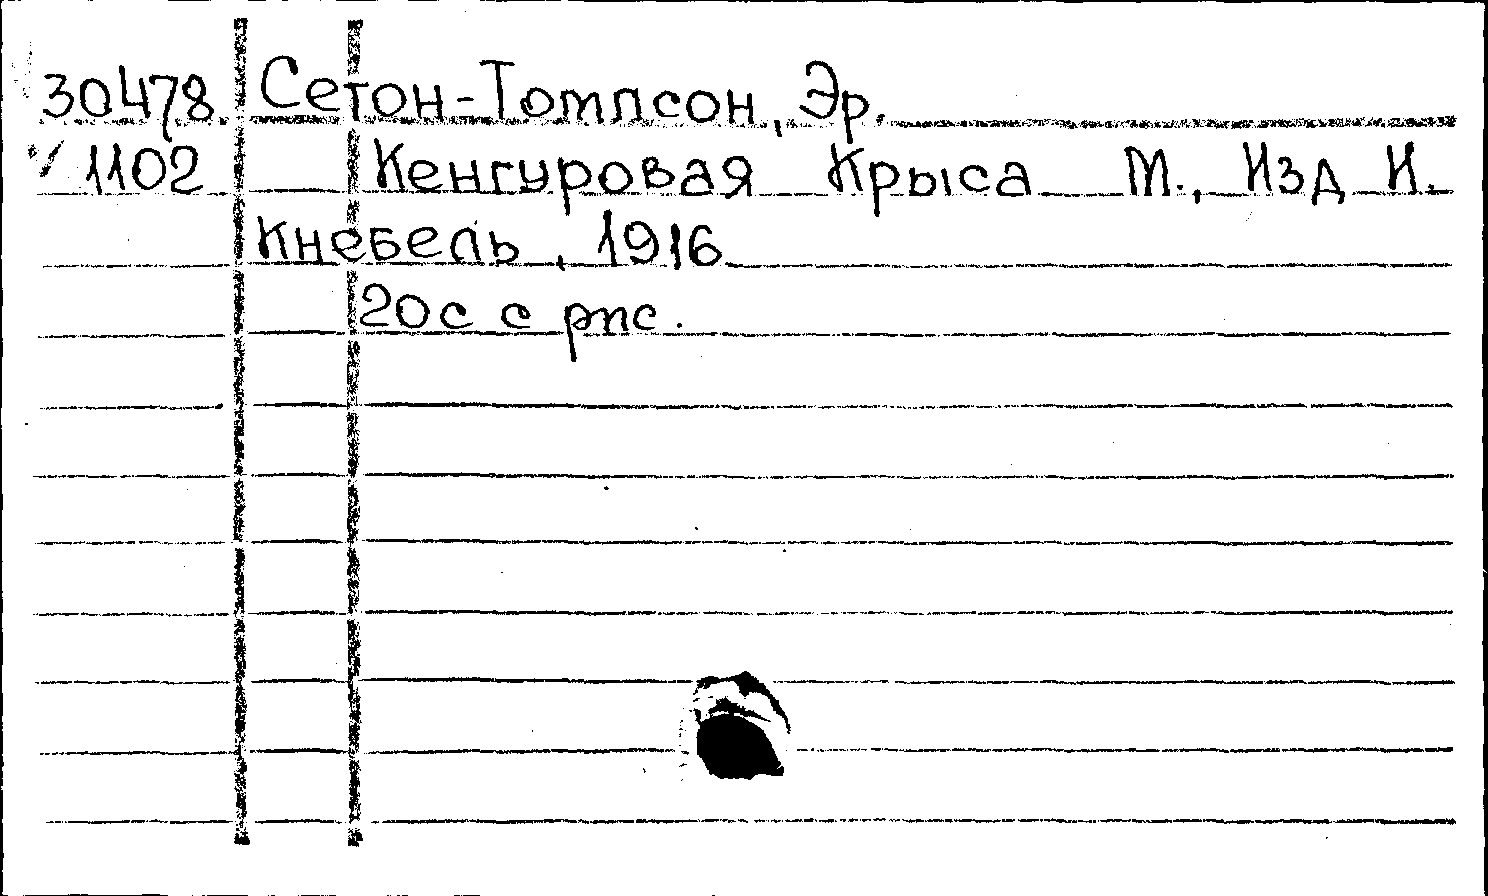 30478 Сетон-Томпсон, Эр.
1102 Кенгуровая Крыса М., Изд И.
Кнебель, 1916
20с с рис.